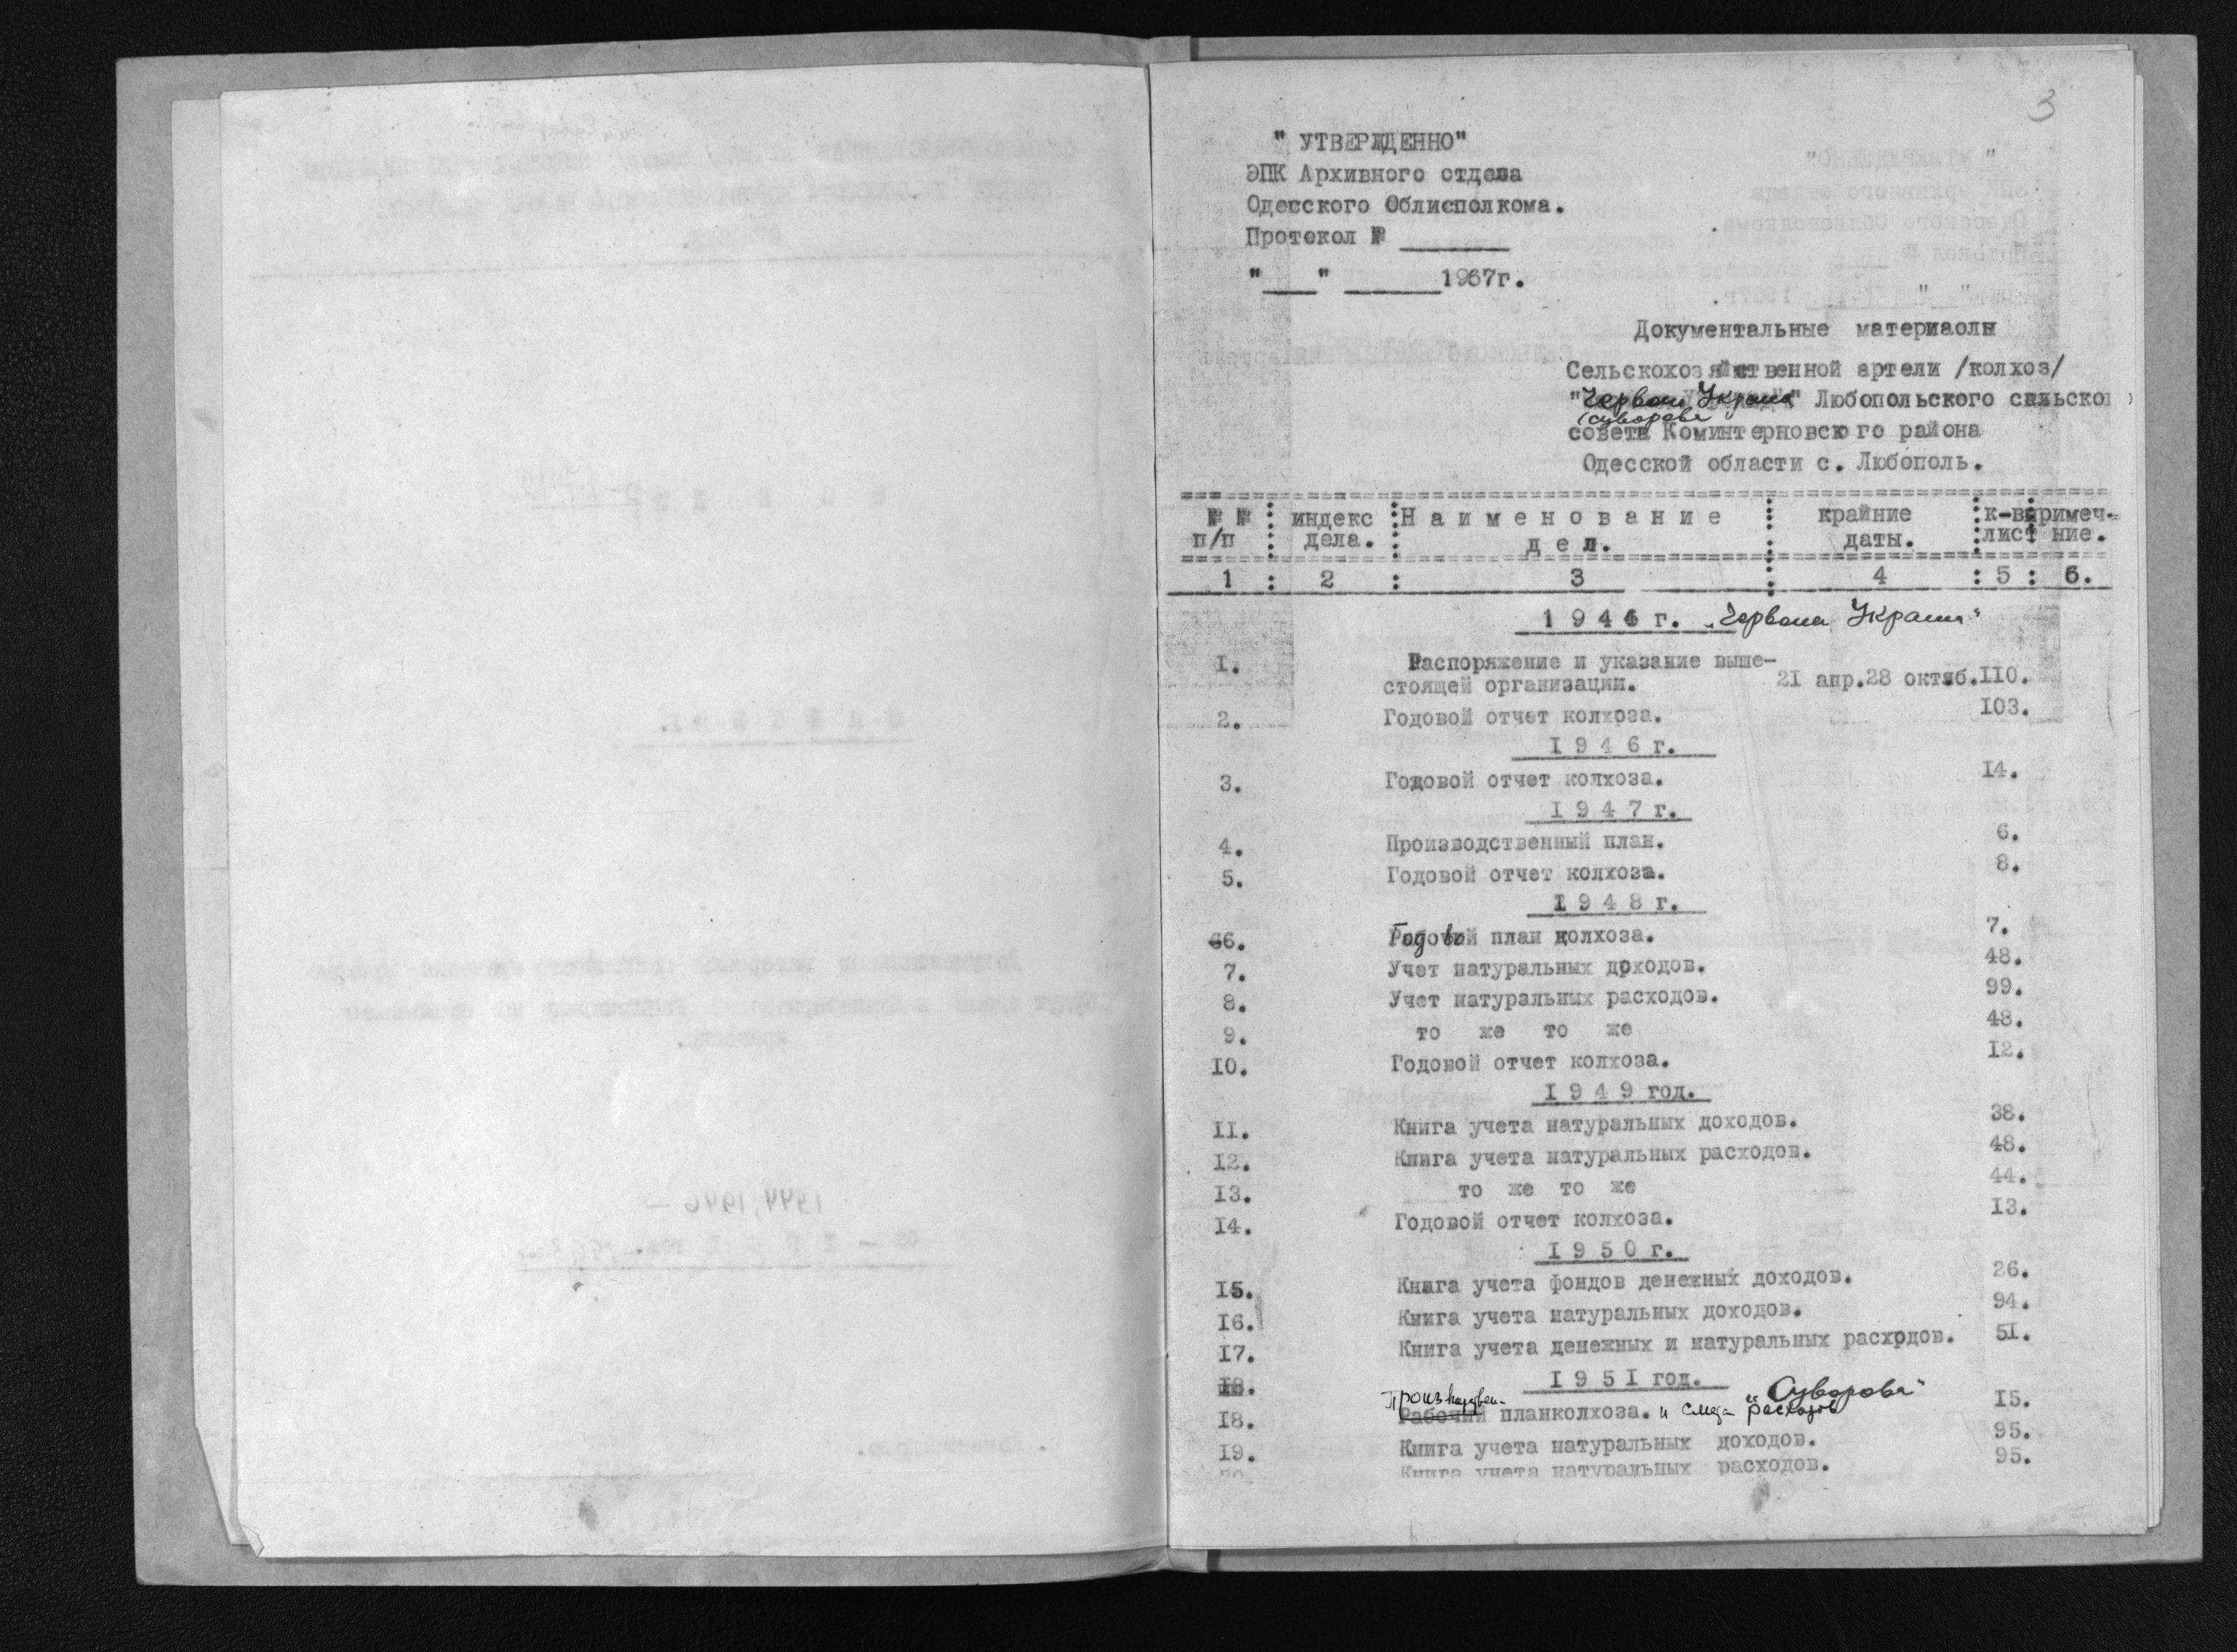 3
" УТВЕРЖДЕННО"
ЭПК Архивного отдела
Одесского Облисполкома.
Протокол № ________
"___" ______1967г.
Документальные материаолы
Сельскохозяйственной артели /колхоз/
"Червона Украина" Любопольского сельско
(Суворова
совета Коминтерновского района
Одесской области с. Любополь.
№ № : индекс : Н а и м е н о в а н и е : крайние : к-во примеч-
п/п : дела. : д е л. : даты. : лист ние.
1 : 2 : 3 : 4 : 5 : 6.
1 9 4 4 г. „Червона Украина"
I. Распоряжение и указание выше-
стоящей организации. 21 апр.28 октяб. II0.
2. Годовой отчет колхоза. I03.
I 9 4 6 г.
3. Годовой отчет колхоза. I4.
I 9 4 7 г.
4. Производственный план. 6.
5. Годовой отчет колхоза. 8.
I 9 4 8 г.
6. Годовой план колхоза. 7.
7. Учет натуральных доходов. 48.
8. Учет натуральных расходов. 99.
9. то же то же 48.
I0. Годовой отчет колхоза. I2.
I 9 4 9 год.
II. Книга учета натуральных доходов. 38.
I2. Книга учета натуральных расходов. 48.
I3. то же то же 44.
I4. Годовой отчет колхоза. I3.
I 9 5 0 г.
I5. Книга учета фондов денежных доходов. 26.
I6. Книга учета натуральных доходов. 94.
I7. Книга учета денежных и натуральных расходов. 5I.
I 9 5 I год. "Суворова"
Производствен-
I8. Рабочий планколхоза. и смета расходов I5.
I9. Книга учета натуральных доходов. 95.
20. Книга учета натуральных расходов. 95.